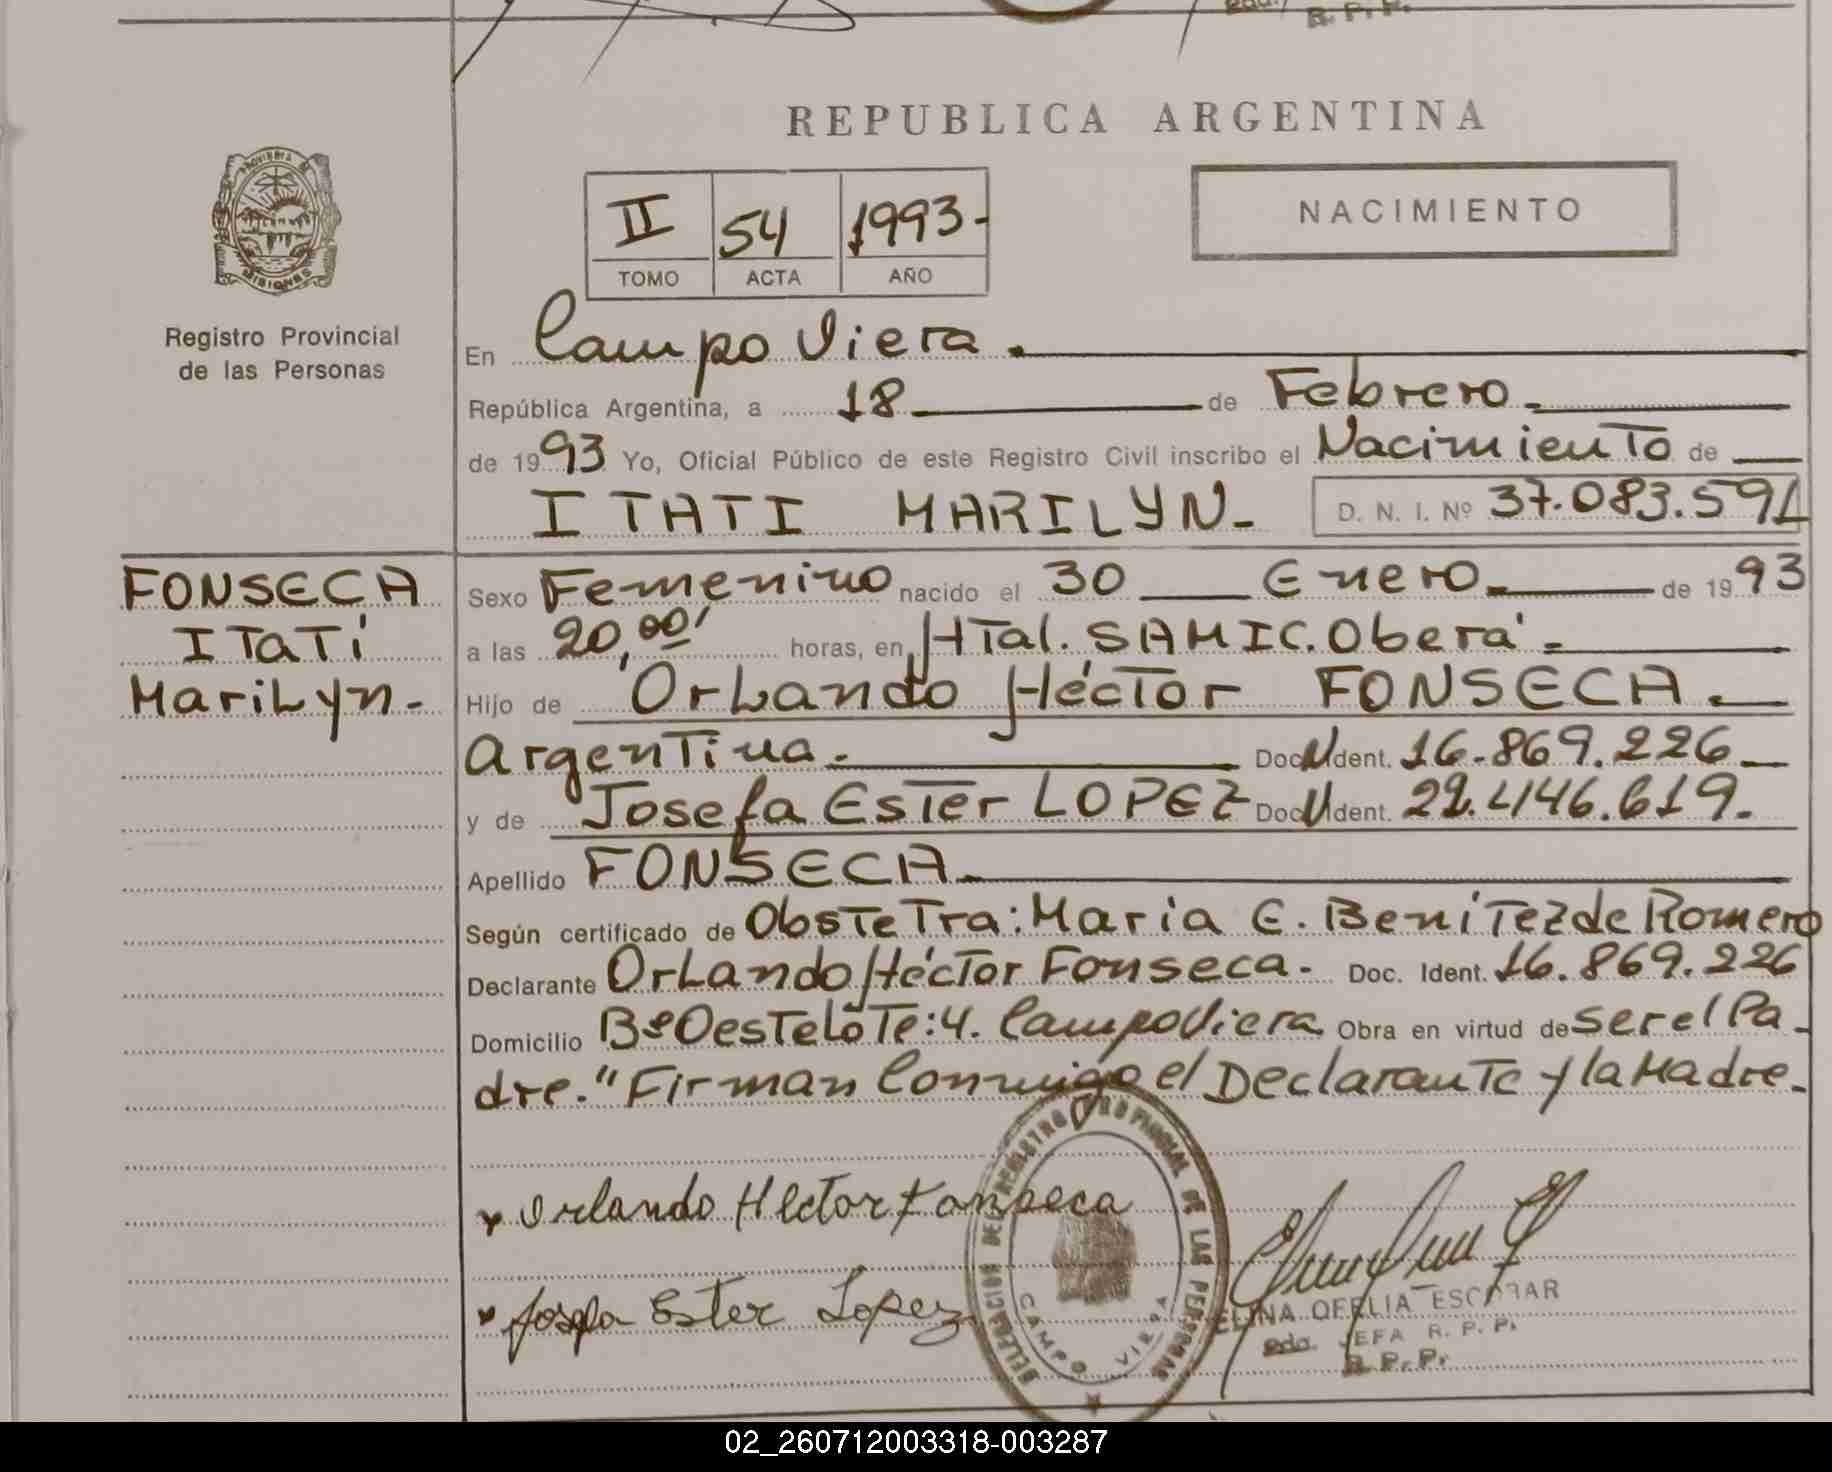 REPUBLICA ARGENTINA
PROVINCIA DE MISIONES
Registro Provincial
de las Personas
II 54 1993-
TOMO ACTA AÑO
NACIMIENTO
En Campo Viera.
República Argentina, a 18 de Febrero.
de 1993 Yo, Oficial Público de este Registro Civil inscribo el Nacimiento de
ITATI MARILYN- D. N. I. Nº 37.083.591
FONSECA
ITaTí
MariLyn.-
Sexo Femenino nacido el 30 Enero. de 1993
a las 20,00' horas, en Htal. SAMIC. Oberá.
Hijo de OrLando Héctor FONSECA.
Argentina. Doc. Ident. 16.869.226
y de Josefa Ester LOPEZ Doc. Ident. 22.446.619.
Apellido FONSECA.
Según certificado de Obstetra: Maria E. Benítez de Romero
Declarante OrLando Héctor Fonseca. Doc. Ident. 16.869.226
Domicilio Bº Oeste Lote: 4. Campo Viera Obra en virtud de ser el Pa-
dre." Firman Conmigo el Declarante y la Madre.
Orlando Hector Fonseca
Josefa Ester Lopez
DELEGACION DEL REGISTRO PROVINCIAL DE LAS PERSONAS
CAMPO VIERA
ELINA OFELIA ESCOBAR
JEFA R. P. P.
R. P. P.
02_260712003318-003287